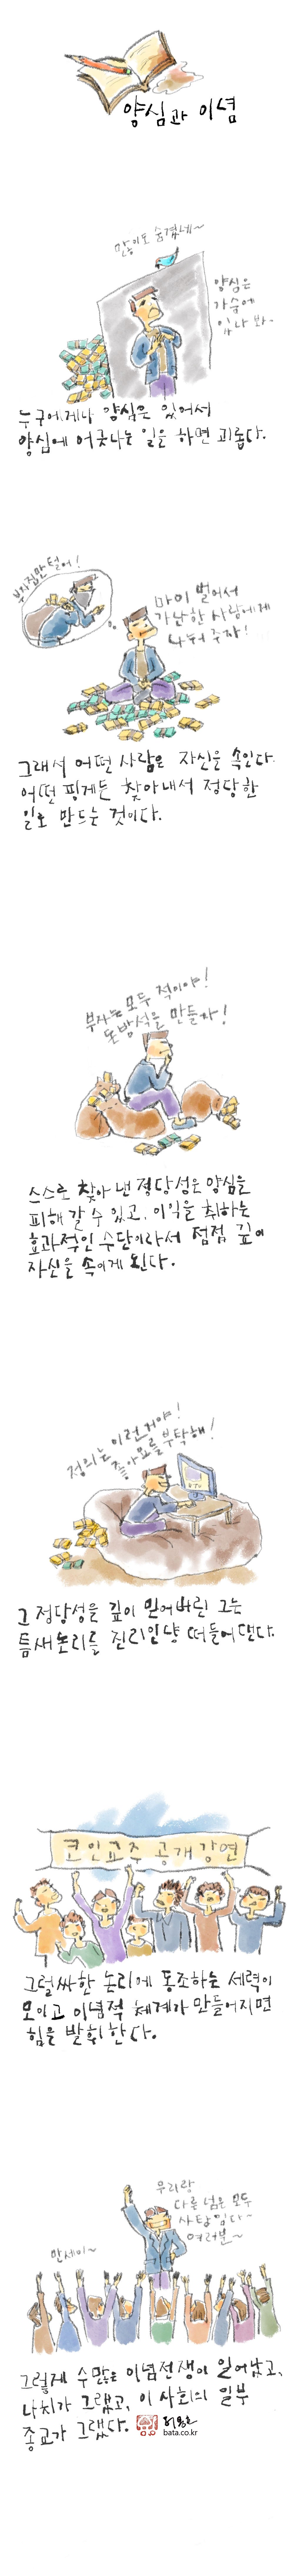 양심과 이념
많이도 숨겼네~
양심은
가슴에
있나 봐~
누구에게나 양심은 있어서
양심에 어긋나는 일을 하면 괴롭다.
부잣집만 털어!
마이 벌어서
가난한 사람에게
나눠 주자!
그래서 어떤 사람은 자신을 속인다.
어떤 핑계든 찾아내서 정당한
일로 만드는 것이다.
부자는 모두 적이야!
돈방석을 만들자!
스스로 찾아 낸 정당성은 양심을
피해 갈 수 있고, 이익을 취하는
효과적인 수단이라서 점점 깊이
자신을 속이게 된다.
정의는 이런거야!
좋아요를 부탁해!
그 정당성을 깊이 믿어버린 그는
틈새논리를 진리인냥 떠들어댄다.
코인교주 공개강연
그럴싸한 논리에 동조하는 세력이
모이고 이념적 체계가 만들어지면
힘을 발휘한다.
우리랑
다른 넘은 모두
사탄임다~
여러분~
만세이~
그렇게 수많은 이념전쟁이 일어났고,
나치가 그랬고, 이 사회의 일부
종교가 그랬다.
bata.co.kr